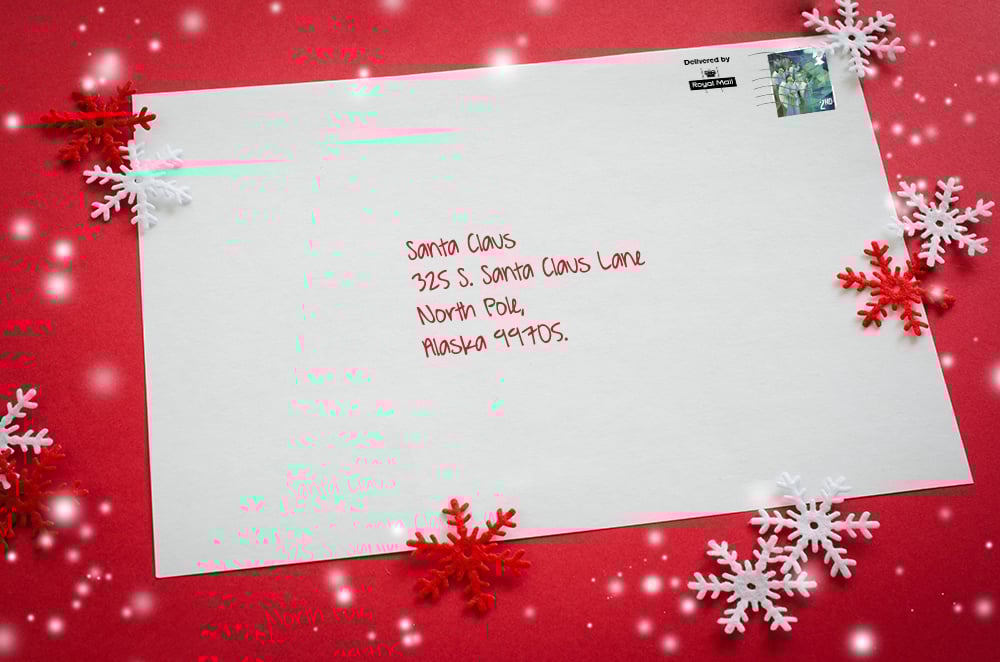 Delivered by
Royal Mail
2ND
Santa Claus
325 S. Santa Claus Lane
North Pole,
Alaska 99705.